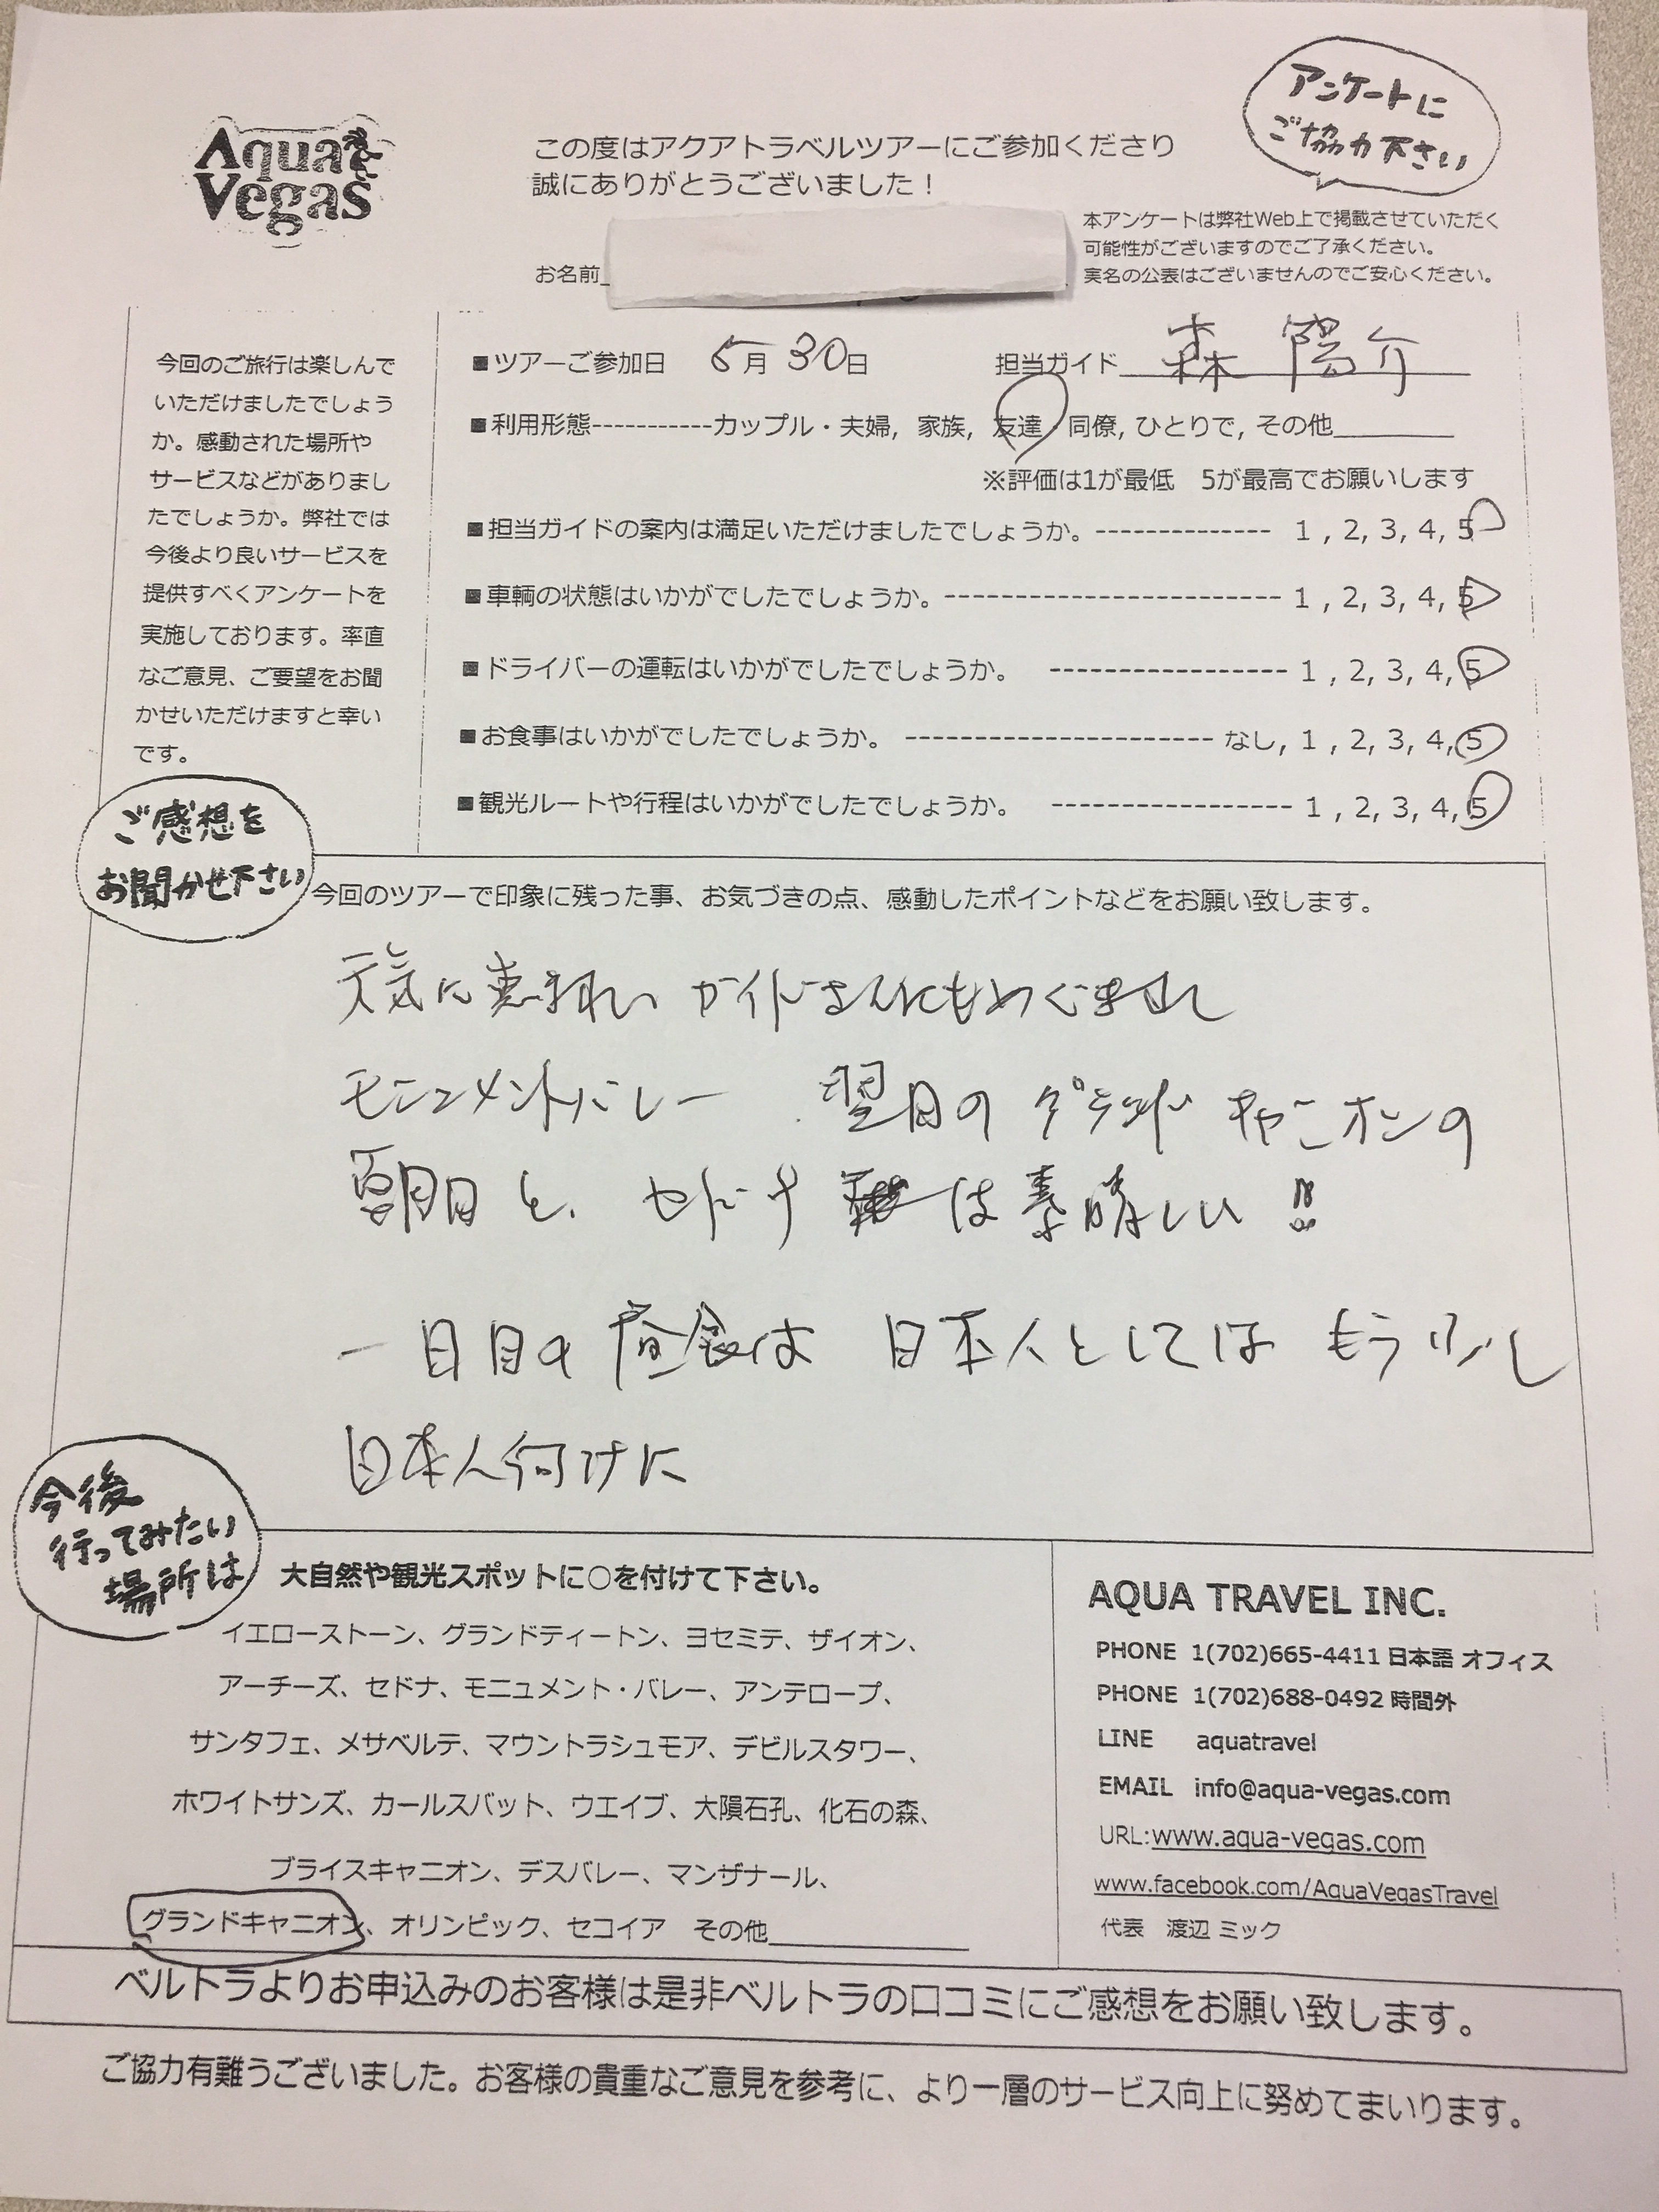 アンケートに
ご協力下さい
Aqua
Vegas
この度はアクアトラベルツアーにご参加くださり
誠にありがとうございました！
本アンケートは弊社Web上で掲載させていただく
可能性がございますのでご了承ください。
実名の公表はございませんのでご安心ください。
お名前
今回のご旅行は楽しんで
いただけましたでしょう
か。感動された場所や
サービスなどがありまし
たでしょうか。弊社では
今後より良いサービスを
提供すべくアンケートを
実施しております。率直
なご意見、ご要望をお聞
かせいただけますと幸い
です。
■ツアーご参加日 5月30日 担当ガイド 森 陽介
■利用形態-----------カップル・夫婦, 家族, 友達, 同僚, ひとりで, その他
※評価は1が最低 5が最高でお願いします
■担当ガイドの案内は満足いただけましたでしょうか。------------- 1 , 2, 3, 4, 5
■車輌の状態はいかがでしたでしょうか。------------------------ 1 , 2, 3, 4, 5
■ドライバーの運転はいかがでしたでしょうか。 ----------------- 1 , 2, 3, 4, 5
■お食事はいかがでしたでしょうか。 ---------------------- なし, 1 , 2, 3, 4, 5
■観光ルートや行程はいかがでしたでしょうか。 ----------------- 1 , 2, 3, 4, 5
ご感想を
お聞かせ下さい
今回のツアーで印象に残った事、お気づきの点、感動したポイントなどをお願い致します。
天気に恵まれ、ガイドさんにもめぐまれ
モニュメントバレー、翌日のグランドキャニオンの
朝日と、セドナは素晴しい!!
一日目の昼食は 日本人としては もう少し
日本人向けに
今後
行ってみたい
場所は
大自然や観光スポットに○を付けて下さい。
イエローストーン、グランドティートン、ヨセミテ、ザイオン、
アーチーズ、セドナ、モニュメント・バレー、アンテロープ、
サンタフェ、メサベルテ、マウントラシュモア、デビルスタワー、
ホワイトサンズ、カールスバット、ウエイブ、大隕石孔、化石の森、
ブライスキャニオン、デスバレー、マンザナール、
グランドキャニオン、オリンピック、セコイア その他
AQUA TRAVEL INC.
PHONE 1(702)665-4411 日本語 オフィス
PHONE 1(702)688-0492 時間外
LINE aquatravel
EMAIL info@aqua-vegas.com
URL:www.aqua-vegas.com
www.facebook.com/AquaVegasTravel
代表 渡辺 ミック
ベルトラよりお申込みのお客様は是非ベルトラの口コミにご感想をお願い致します。
ご協力有難うございました。お客様の貴重なご意見を参考に、より一層のサービス向上に努めてまいります。